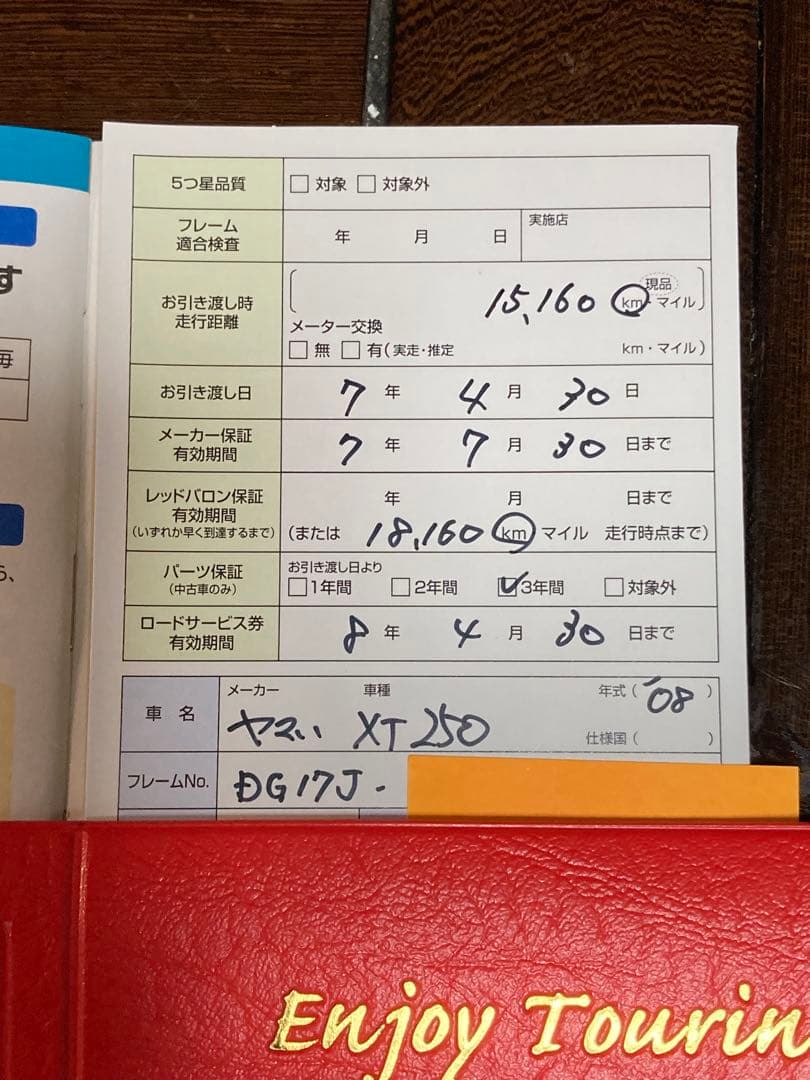 す
毎
ら、
5つ星品質 □対象 □対象外
フレーム
適合検査
年 月 日
実施店
お引き渡し時
走行距離
現品
15,160 km・マイル
メーター交換
□無 □有(実走・推定 km・マイル)
お引き渡し日 7年 4月 30日
メーカー保証
有効期間
7年 7月 30日まで
レッドバロン保証
有効期間
(いずれか早く到達するまで)
年 月 日まで
(または 18,160 km マイル 走行時点まで)
パーツ保証
(中古車のみ)
お引き渡し日より
□1年間 □2年間 ☑3年間 □対象外
ロードサービス券
有効期間
8年 4月 30日まで
車名
メーカー 車種 年式('08)
ヤマハ XT250
仕様国( )
フレームNo. DG17J-
Enjoy Tourin